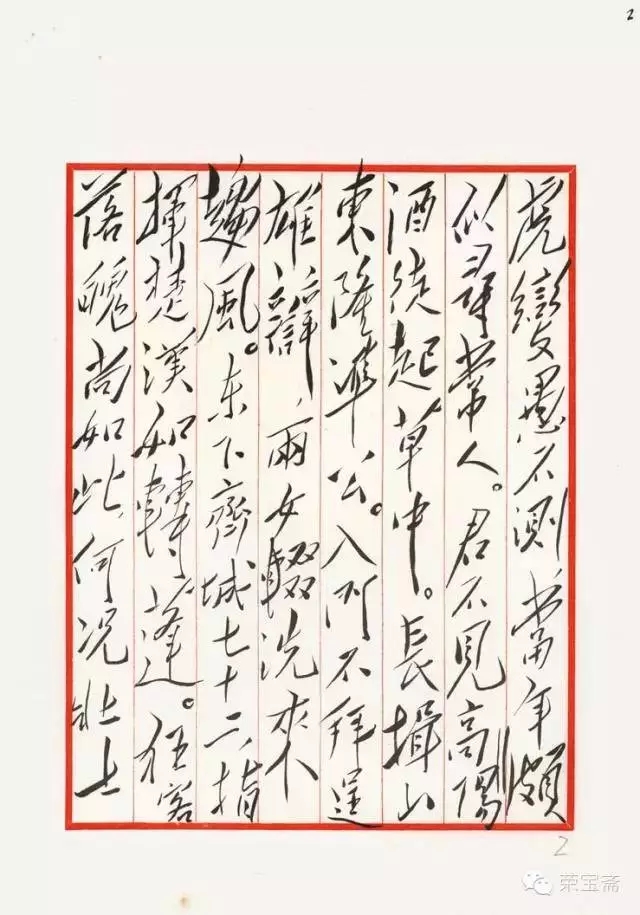 2
虎變愚不測，當年頗
似尋常人。君不見高陽
酒徒起草中。長揖山
東隆準公。入门不拜逞
雄辯，兩女輟洗來
趨風。东下齊城七十二，指
揮楚漢如轉蓬。狂客
落魄尚如此，何况壯士
2
荣宝斋